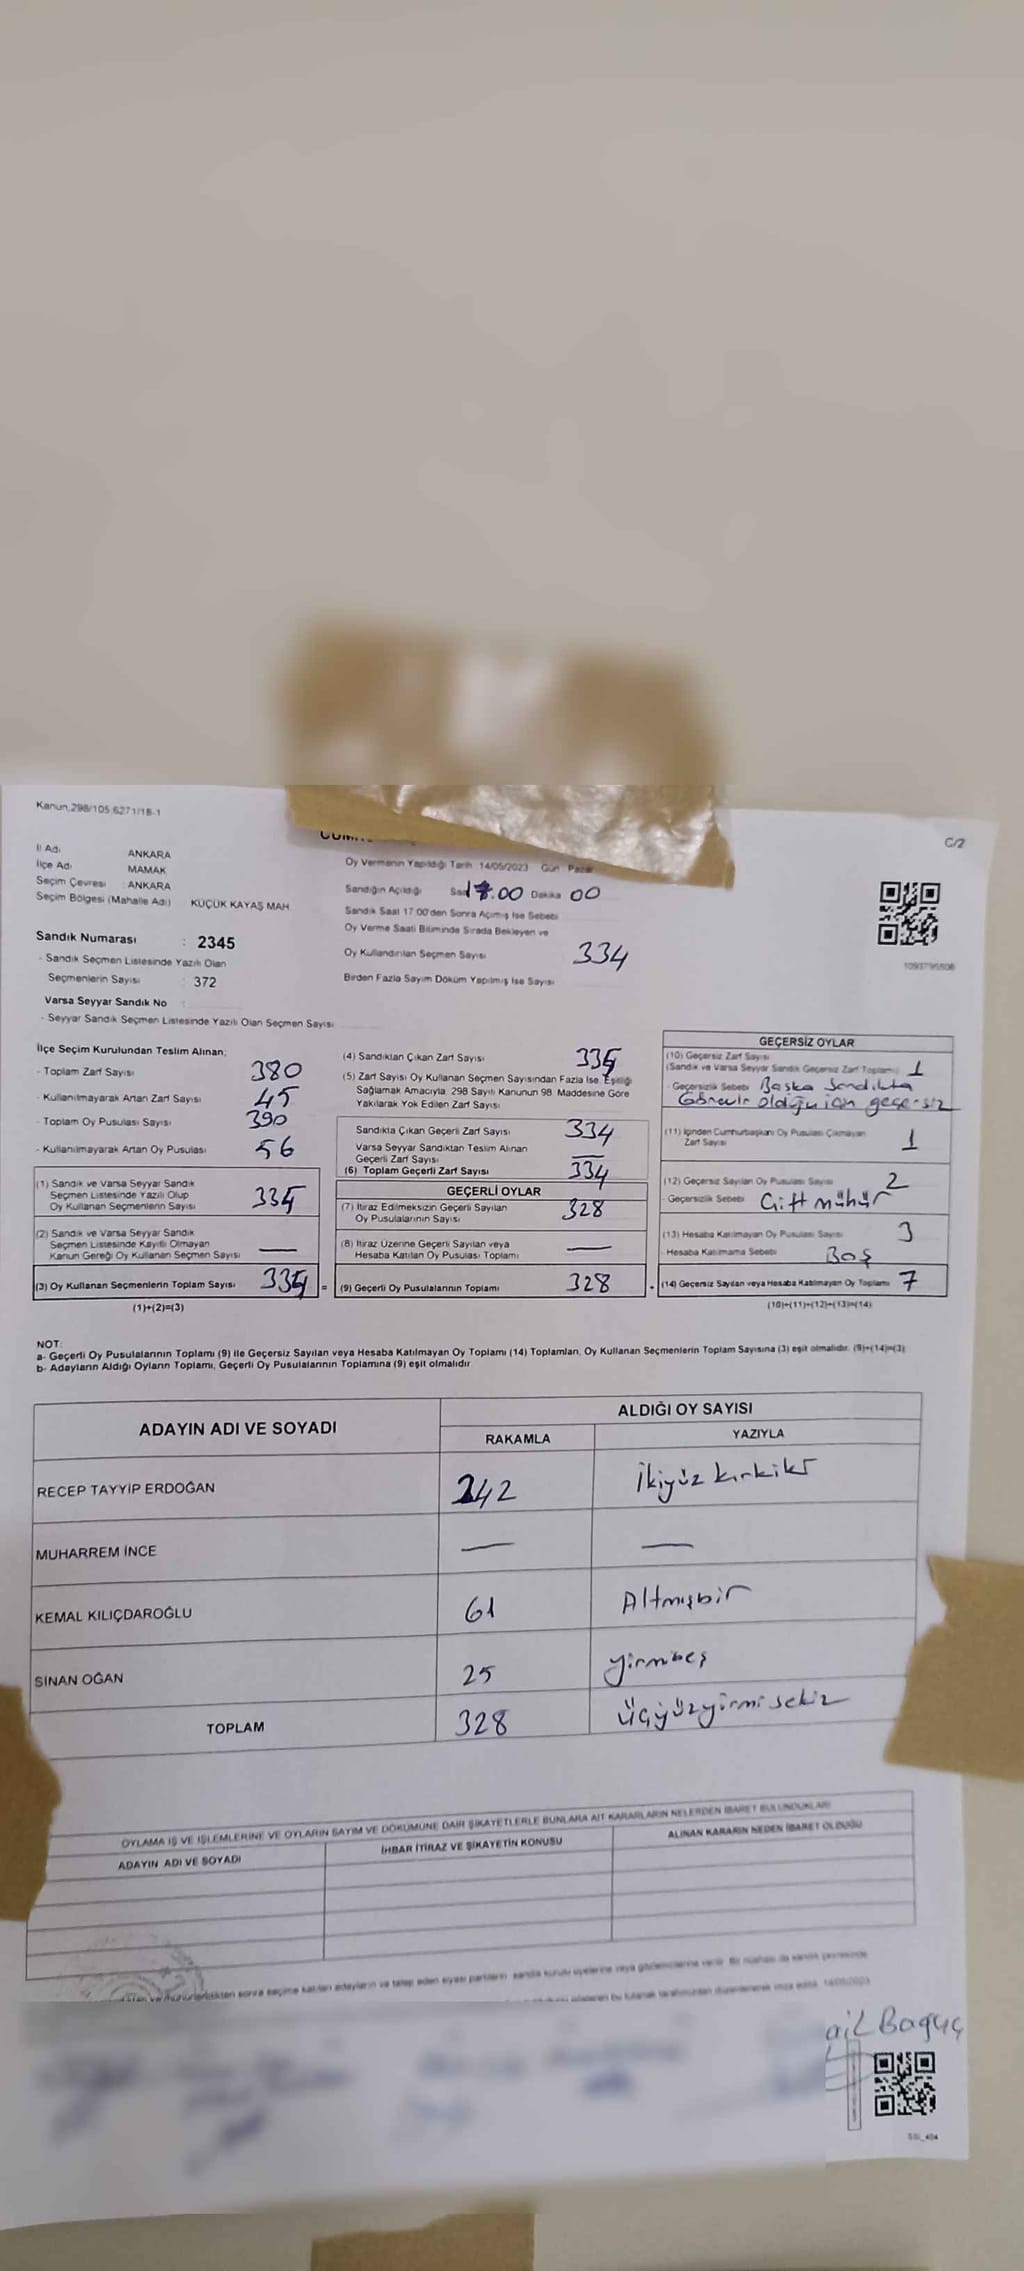 Kanun:298/105;6271/18-1
C/2
İl Adı ANKARA
İlçe Adı MAMAK
Seçim Çevresi : ANKARA
Seçim Bölgesi (Mahalle Adı) KÜÇÜK KAYAŞ MAH.
Sandık Numarası : 2345
- Sandık Seçmen Listesinde Yazılı Olan
Seçmenlerin Sayısı : 372
Varsa Seyyar Sandık No :
- Seyyar Sandık Seçmen Listesinde Yazılı Olan Seçmen Sayısı
Oy Vermenin Yapıldığı Tarih 14/05/2023 Gün Pazar
Sandığın Açıldığı Saat 17.00 Dakika 00
Sandık Saat 17:00'den Sonra Açılmış İse Sebebi
Oy Verme Saati Bitiminde Sırada Bekleyen ve
Oy Kullandırılan Seçmen Sayısı 334
Birden Fazla Sayım Döküm Yapılmış İse Sayısı
1093795508
İlçe Seçim Kurulundan Teslim Alınan;
- Toplam Zarf Sayısı 380
- Kullanılmayarak Artan Zarf Sayısı 45
- Toplam Oy Pusulası Sayısı 390
- Kullanılmayarak Artan Oy Pusulası 56
(1) Sandık ve Varsa Seyyar Sandık
Seçmen Listesinde Yazılı Olup
Oy Kullanan Seçmenlerin Sayısı 335
(2) Sandık ve Varsa Seyyar Sandık
Seçmen Listesinde Kayıtlı Olmayan
Kanun Gereği Oy Kullanan Seçmen Sayısı —
(3) Oy Kullanan Seçmenlerin Toplam Sayısı 335 =
(1)+(2)=(3)
(4) Sandıktan Çıkan Zarf Sayısı 335
(5) Zarf Sayısı Oy Kullanan Seçmen Sayısından Fazla İse, Eşitliği
Sağlamak Amacıyla, 298 Sayılı Kanunun 98. Maddesine Göre
Yakılarak Yok Edilen Zarf Sayısı
Sandıkta Çıkan Geçerli Zarf Sayısı 334
Varsa Seyyar Sandıktan Teslim Alınan
Geçerli Zarf Sayısı —
(6) Toplam Geçerli Zarf Sayısı 334
GEÇERLİ OYLAR
(7) İtiraz Edilmeksizin Geçerli Sayılan
Oy Pusulalarının Sayısı 328
(8) İtiraz Üzerine Geçerli Sayılan veya
Hesaba Katılan Oy Pusulası Toplamı —
(9) Geçerli Oy Pusulalarının Toplamı 328
GEÇERSİZ OYLAR
(10) Geçersiz Zarf Sayısı
(Sandık ve Varsa Seyyar Sandık Geçersiz Zarf Toplamı) 1
- Geçersizlik Sebebi Başka Sandıkta
Görevli olduğu için geçersiz
(11) İçinden Cumhurbaşkanı Oy Pusulası Çıkmayan
Zarf Sayısı 1
(12) Geçersiz Sayılan Oy Pusulası Sayısı 2
- Geçersizlik Sebebi Çift mühür
(13) Hesaba Katılmayan Oy Pusulası Sayısı 3
- Hesaba Katılmama Sebebi Boş
(14) Geçersiz Sayılan veya Hesaba Katılmayan Oy Toplamı 7
(10)+(11)+(12)+(13)=(14)
NOT:
a- Geçerli Oy Pusulalarının Toplamı (9) ile Geçersiz Sayılan veya Hesaba Katılmayan Oy Toplamı (14) Toplamları, Oy Kullanan Seçmenlerin Toplam Sayısına (3) eşit olmalıdır. (9)+(14)=(3)
b- Adayların Aldığı Oyların Toplamı, Geçerli Oy Pusulalarının Toplamına (9) eşit olmalıdır.
ADAYIN ADI VE SOYADI
ALDIĞI OY SAYISI
RAKAMLA YAZIYLA
RECEP TAYYİP ERDOĞAN 242 İkiyüz kırkiki
MUHARREM İNCE — —
KEMAL KILIÇDAROĞLU 61 Altmışbir
SİNAN OĞAN 25 yirmibeş
TOPLAM 328 üçyüzyirmi sekiz
OYLAMA İŞ VE İŞLEMLERİNE VE OYLARIN SAYIM VE DÖKÜMÜNE DAİR ŞİKAYETLERLE BUNLARA AİT KARARLARIN NELERDEN İBARET BULUNDUKLARI
ADAYIN ADI VE SOYADI İHBAR İTİRAZ VE ŞİKAYETİN KONUSU ALINAN KARARIN NEDEN İBARET OLDUĞU
sonra seçime katılan adayların ve talep eden siyasi partilerin sandık kurulu üyelerine veya gözlemcilerine verilir. Bir nüshası da sandık çevresinde
bu tutanak tarafımızdan düzenlenerek imza edildi. 14/05/2023